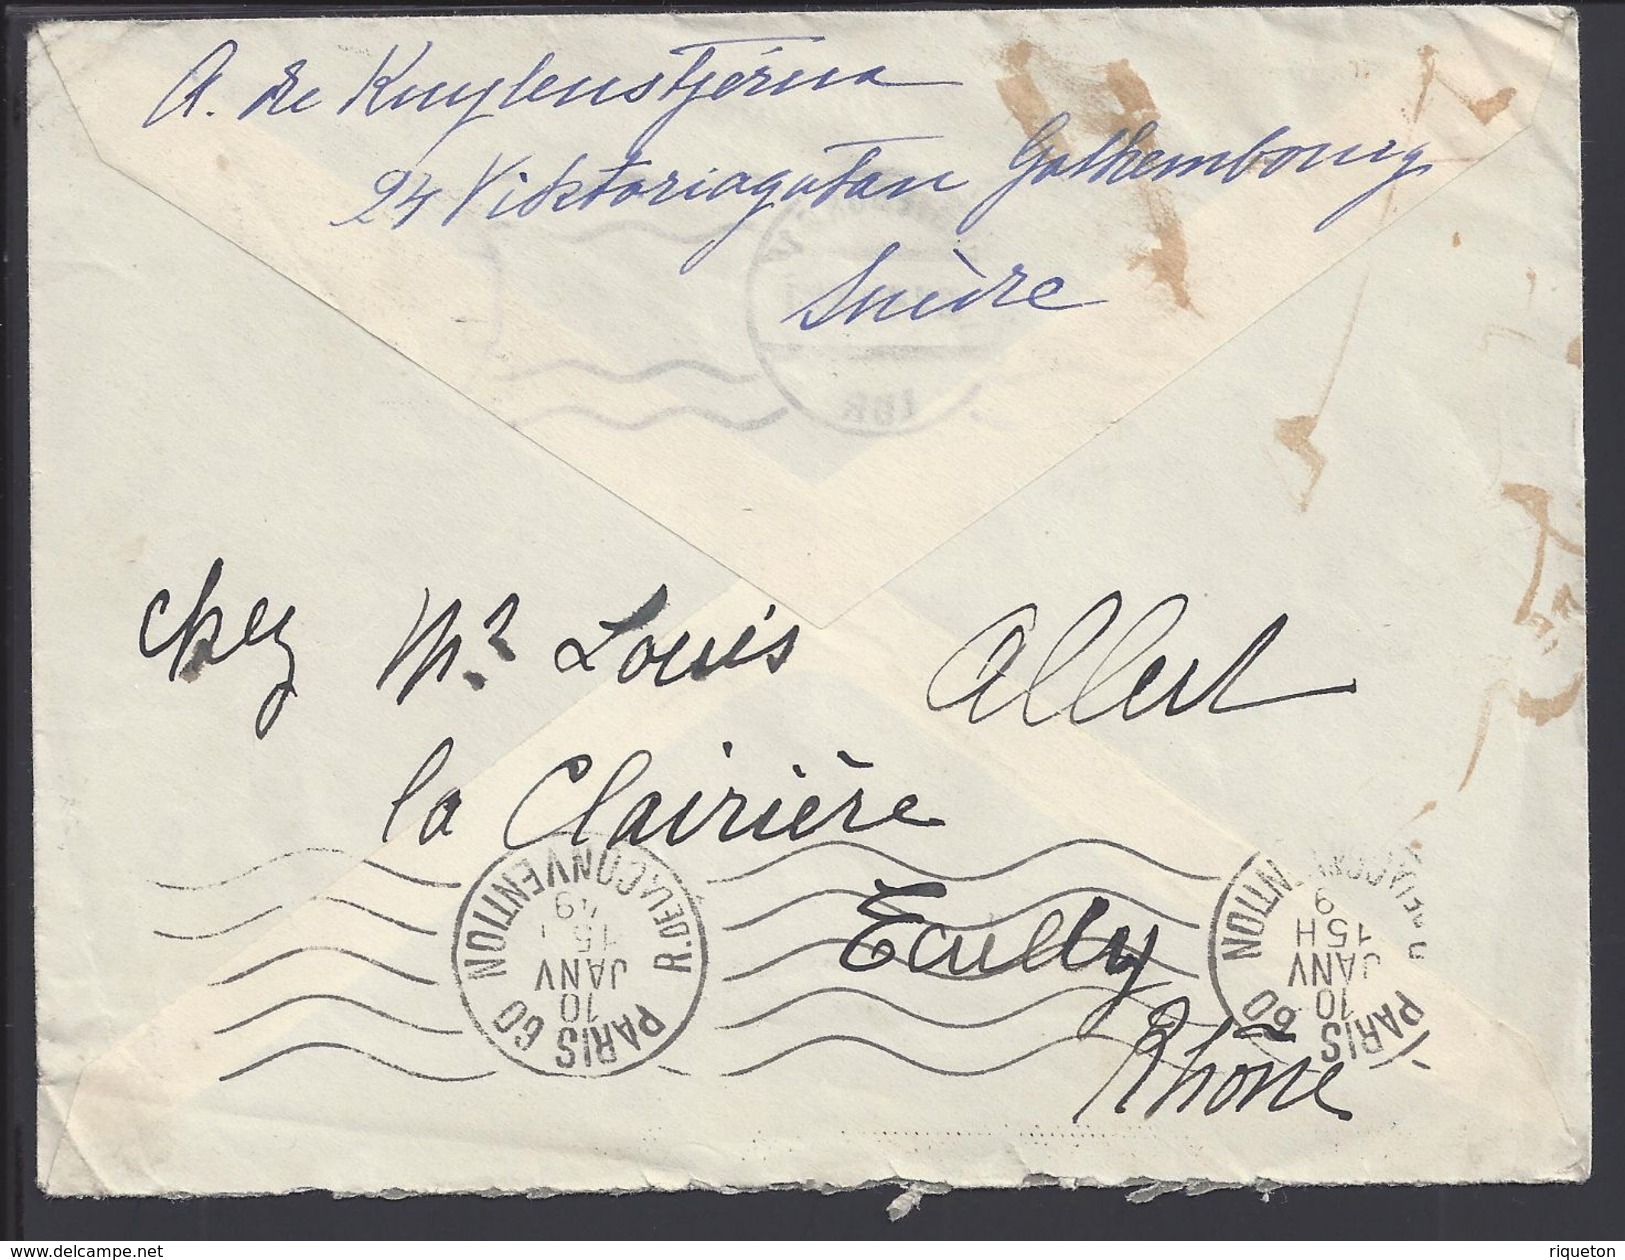 A. de Kuylenstjérna
24 Viktoriagatan Gothembourg
Suède
18K
chez Mr. Louis Allert
la Clairière
Ecully
Rhône
PARIS 60 R. DE LA CONVENTION
15H
10 JANV
49
PARIS 60
15H
10 JANV
9
www.delcampe.net
riqueton